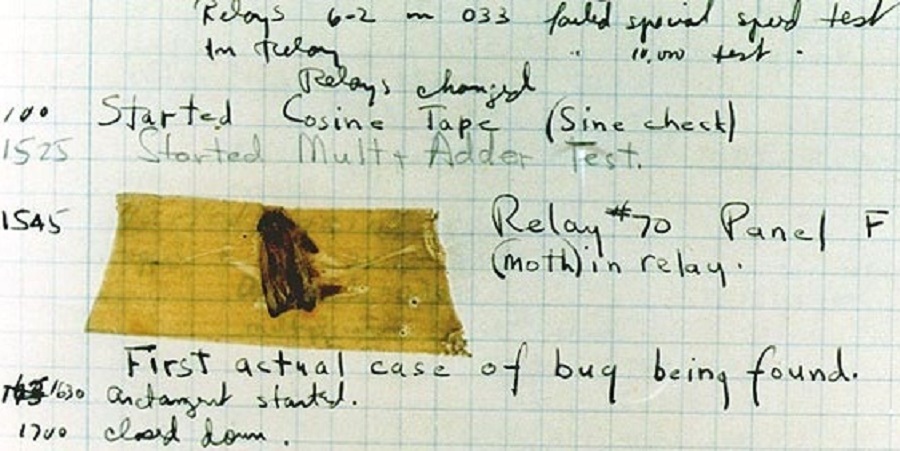 Relays 6-2 in 033 failed special speed test
In Relay " 10,000 test .
Relays changed
1100 Started Cosine Tape (Sine check)
1525 Started Mult + Adder Test.
1545 Relay #70 Panel F
(moth) in relay.
First actual case of bug being found.
1630 Arctangent started.
1700 closed down.